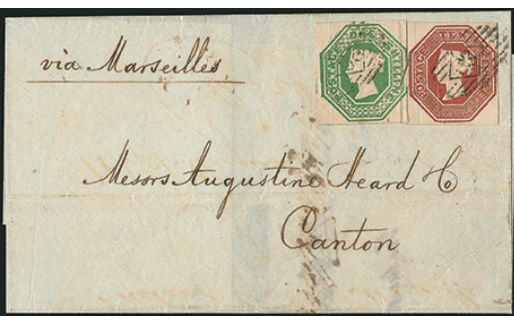 via Marseilles
POSTAGE ONE SHILLING
POSTAGE TEN
Messrs Augustine Heard & Co
Canton